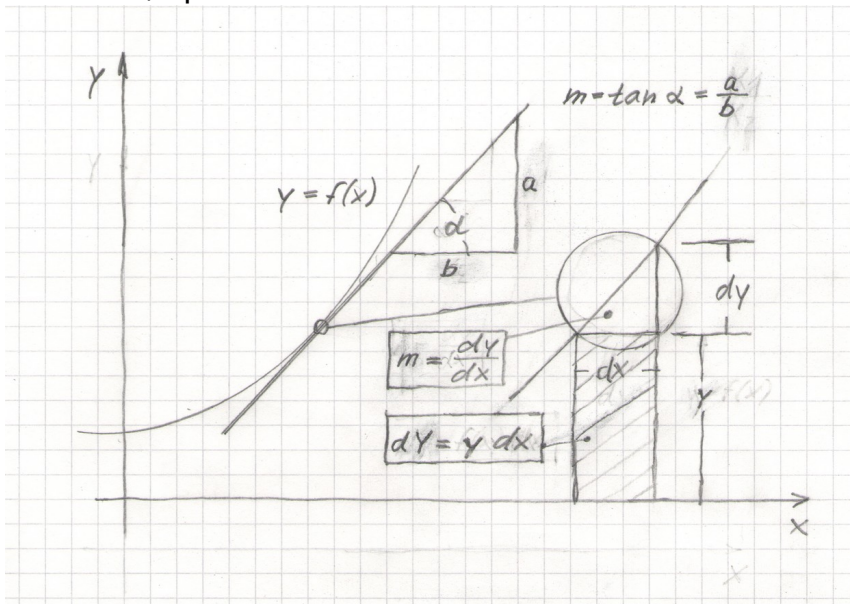 Y
m = tan α = a/b
y = f(x)
a
α
b
dy
m = dy/dx
dx
y
dY = y dx
x